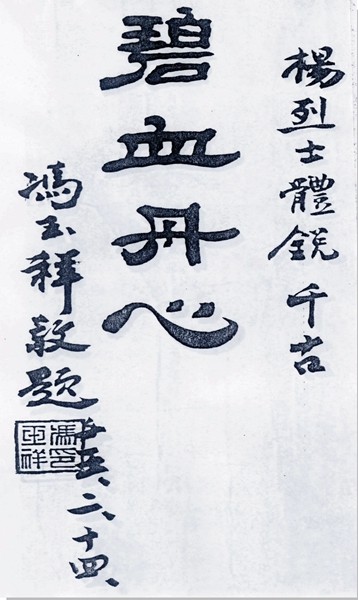 楊烈士體銳千古
碧血丹心
馮玉祥敬題
廿五、二、十四、
馮印玉祥